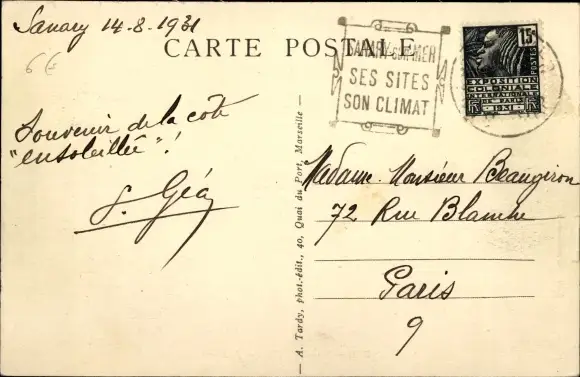 Sanary 14-8-1931
CARTE POSTALE
6€
SANARY-SUR-MER
SES SITES
SON CLIMAT
15c
POSTES
EXPOSITION
COLONIALE
INTERNATIONALE
DE PARIS
1931
RF
Souvenir de la côte
"ensoleillée"!
S. Géa
A. Tardy, phot.-édit., 40, Quai du Port, Marseille
Madame Monsieur Beaugiron
72 Rue Blanche
Paris
9